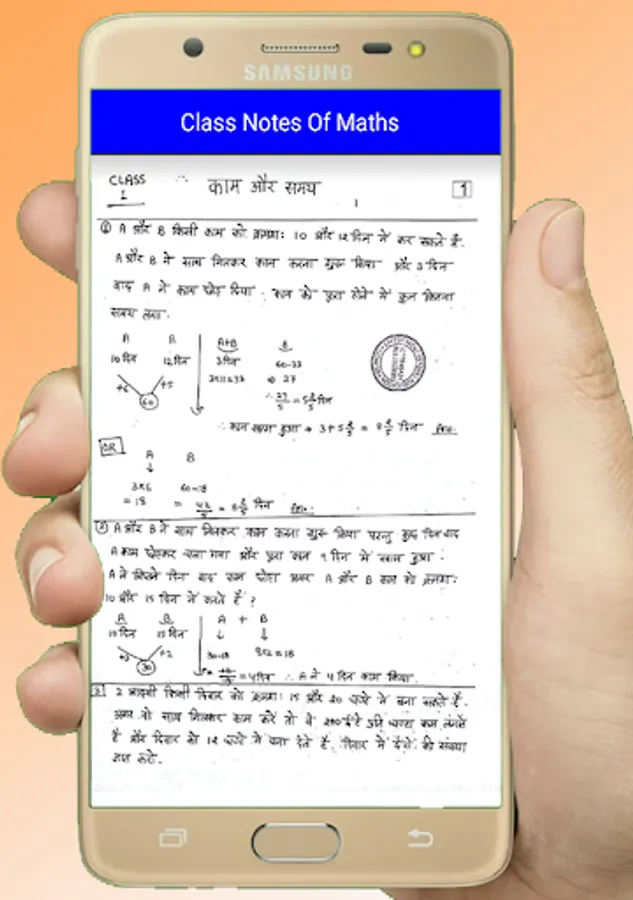 SAMSUNG
Class Notes Of Maths
CLASS 1 ∴ काम और समय 1
① A और B किसी काम को क्रमशः 10 और 12 दिन में कर सकते हैं.
A और B ने साथ मिलकर काम करना शुरू किया और 3 दिन
बाद A ने काम छोड़ दिया. काम को पूरा होने में कुल कितना
समय लगा.
A B A+B B
10 दिन 12 दिन 3दिन 60-33
+6 +5 3×11=33 ⇒ 27
60 ∴ 27/5 = 5 2/5 दिन
∴ काम खत्म हुआ → 3+5 2/5 = 8 2/5 दिन Ans.
OR A B
3×6 60-18
= 18 = 42/5 = 8 2/5 दिन Ans.
② A और B ने मिलकर काम करना शुरू किया परन्तु कुछ दिन बाद
A काम छोड़कर चला गया और पूरा काम 9 दिन में खत्म हुआ.
A ने कितने दिन बाद काम छोड़ा अगर A और B काम को क्रमशः
10 और 15 दिन में करते हैं?
A B A + B
10 दिन 15 दिन 30-18 9×2=18
+3 +2
30 = 4दिन ∴ A ने 4 दिन काम किया.
3 2 आदमी किसी दिवार को क्रमशः 15 और 20 घण्टे में बना सकते हैं.
अगर वो साथ मिलकर काम करें तो वे ईंटें प्रति घण्टा कम लगाते
हैं और दिवार को 12 घण्टे में बना देते हैं. दिवार में ईंटों की संख्या
ज्ञात करो.